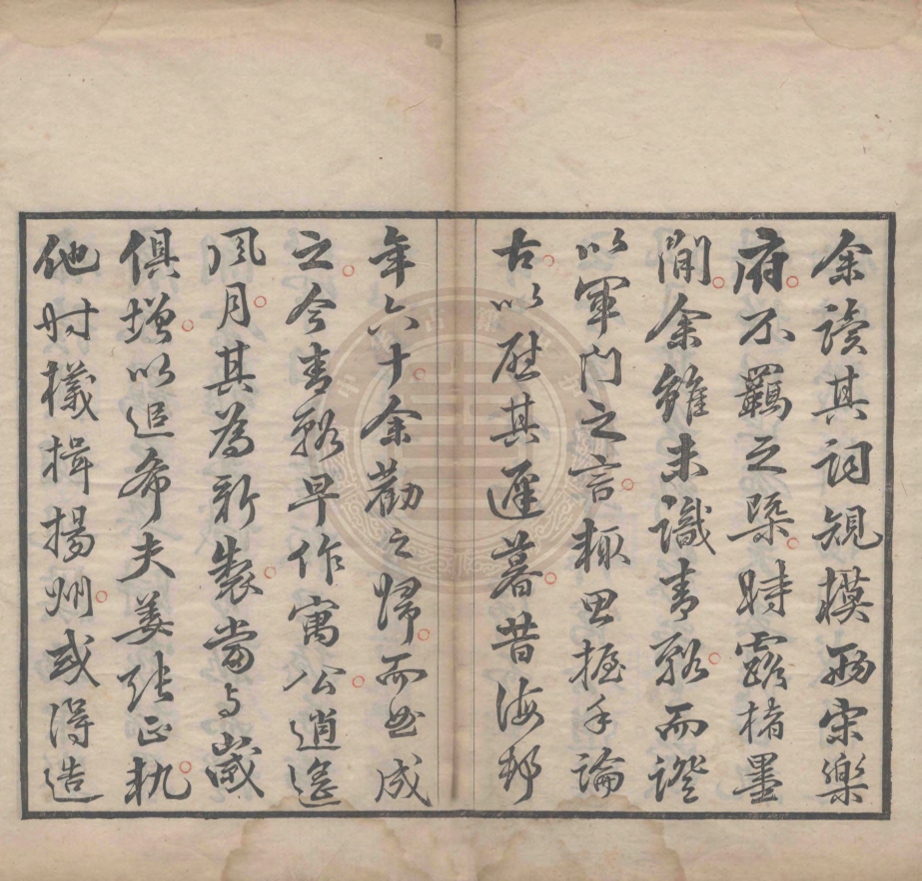 余讀其詞規模兩宋樂
府不羈之槩時露楮墨
間余雖未識青谿而證
以軍門之言輒思握手論
古以慰其遲暮昔海邨
年六十余勸之歸而成
之今青谿早作寓公逍遙
風月其為新製當与歲
俱增以追希夫姜張正軌
他時檥楫揚州或得造